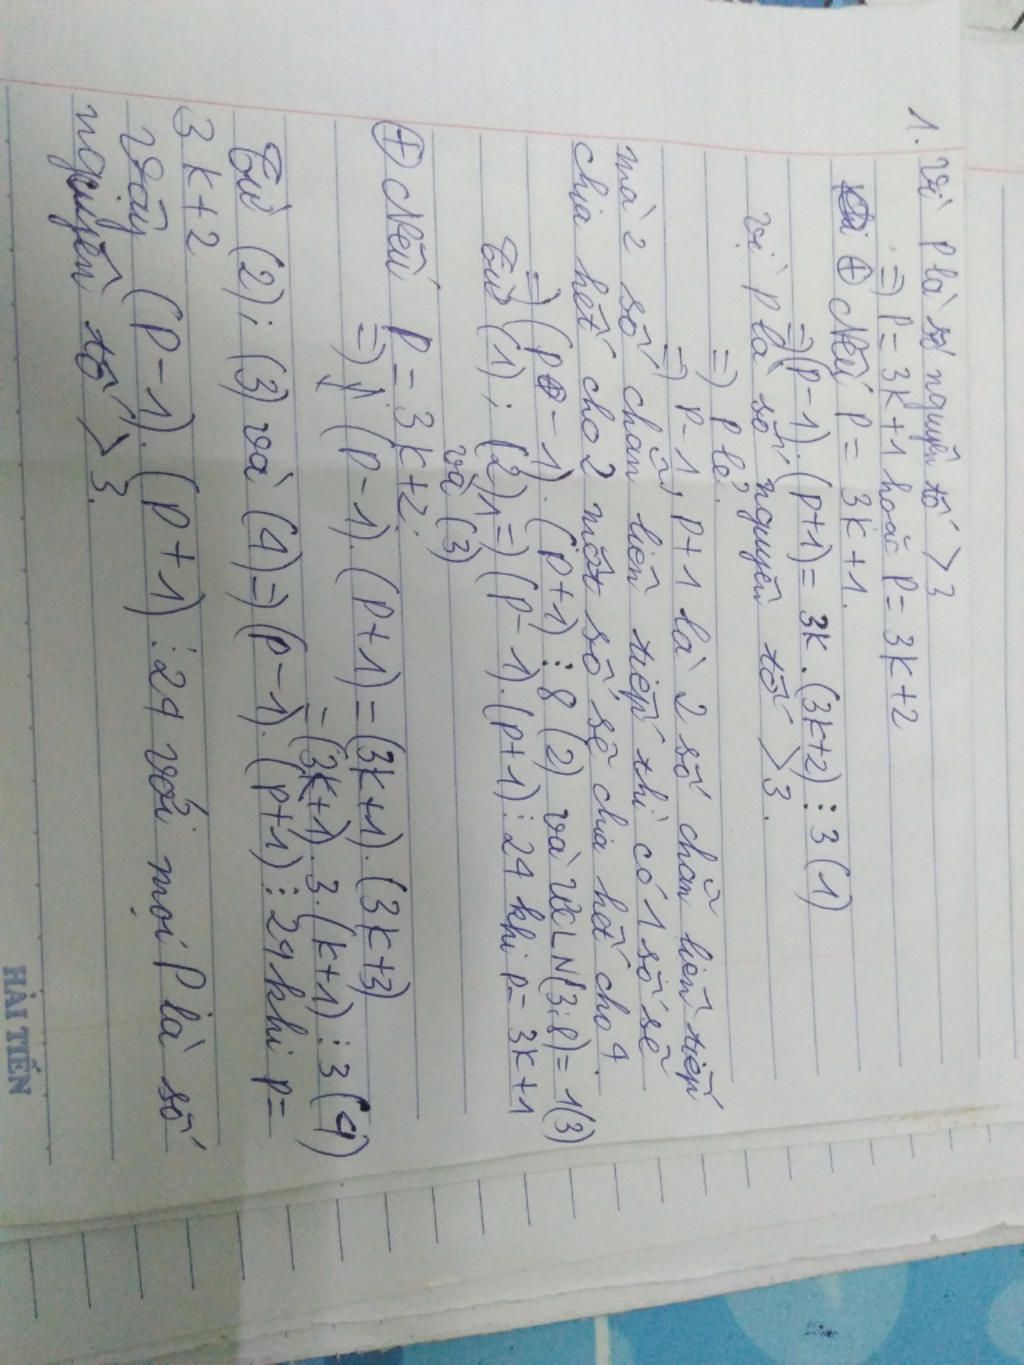 1. Vì P là số nguyên tố > 3
=) P = 3K+1 hoặc P = 3K+2
+ Nếu P = 3K+1.
=) (P-1).(P+1) = 3K.(3K+2) ⋮ 3 (1)
vì P là số nguyên tố > 3.
=) P lẻ.
=) P-1, P+1 là 2 số chẵn liên tiếp
mà 2 số chẵn liên tiếp thì có 1 số sẽ
chia hết cho 2 một số sẽ chia hết cho 4
=) (P-1).(P+1) ⋮ 8 (2) và ƯCLN(3;8) = 1(3)
Từ (1); (2) và (3) =) (P-1).(P+1) ⋮ 24 khi P = 3K+1
+ Nếu P = 3K+2.
=) (P-1).(P+1) = (3K+1).(3K+3)
= (3K+1).3.(K+1) ⋮ 3 (4)
Từ (2); (3) và (4) =) (P-1).(P+1) ⋮ 24 khi P =
3K+2
Vậy (P-1).(P+1) ⋮ 24 với mọi P là số
nguyên tố > 3.
HẢI TIẾN